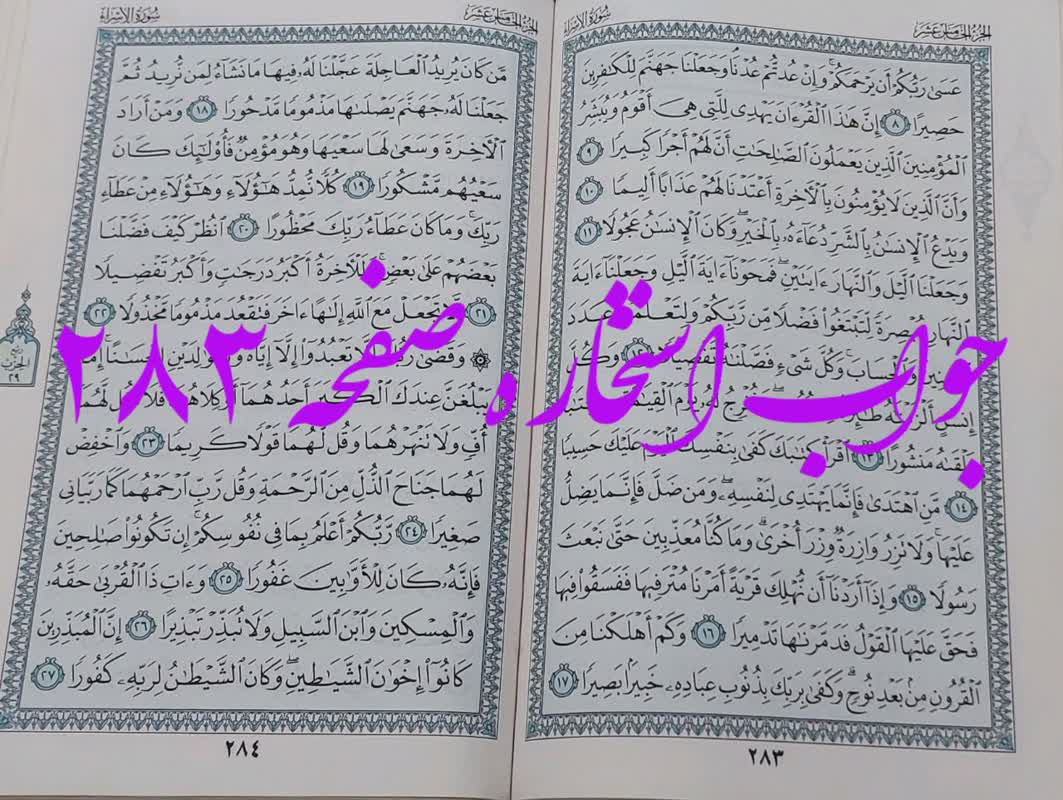 الجزء الخامس عشر
سورة الإسراء
عَسَىٰ رَبُّكُمْ أَن يَرْحَمَكُمْ ۚ وَإِنْ عُدتُّمْ عُدْنَا ۘ وَجَعَلْنَا جَهَنَّمَ لِلْكَٰفِرِينَ
حَصِيرًا ٨ إِنَّ هَٰذَا ٱلْقُرْءَانَ يَهْدِى لِلَّتِى هِىَ أَقْوَمُ وَيُبَشِّرُ
ٱلْمُؤْمِنِينَ ٱلَّذِينَ يَعْمَلُونَ ٱلصَّٰلِحَٰتِ أَنَّ لَهُمْ أَجْرًا كَبِيرًا ٩
وَأَنَّ ٱلَّذِينَ لَا يُؤْمِنُونَ بِٱلْءَاخِرَةِ أَعْتَدْنَا لَهُمْ عَذَابًا أَلِيمًا ١٠
وَيَدْعُ ٱلْإِنسَٰنُ بِٱلشَّرِّ دُعَآءَهُۥ بِٱلْخَيْرِ ۖ وَكَانَ ٱلْإِنسَٰنُ عَجُولًا ١١
وَجَعَلْنَا ٱلَّيْلَ وَٱلنَّهَارَ ءَايَتَيْنِ ۖ فَمَحَوْنَآ ءَايَةَ ٱلَّيْلِ وَجَعَلْنَآ ءَايَةَ
ٱلنَّهَارِ مُبْصِرَةً لِّتَبْتَغُوا۟ فَضْلًا مِّن رَّبِّكُمْ وَلِتَعْلَمُوا۟ عَدَدَ
وَٱلْحِسَابَ ۚ وَكُلَّ شَىْءٍ فَصَّلْنَٰهُ تَفْصِيلًا ١٢ وَكُلَّ
إِنسَٰنٍ أَلْزَمْنَٰهُ لَهُۥ يَوْمَ ٱلْقِيَٰمَةِ
يَلْقَىٰهُ مَنشُورًا ١٣ ٱقْرَأْ كِتَٰبَكَ كَفَىٰ بِنَفْسِكَ ٱلْيَوْمَ عَلَيْكَ حَسِيبًا
١٤ مَّنِ ٱهْتَدَىٰ فَإِنَّمَا يَهْتَدِى لِنَفْسِهِۦ ۖ وَمَن ضَلَّ فَإِنَّمَا يَضِلُّ
عَلَيْهَا ۚ وَلَا تَزِرُ وَازِرَةٌ وِزْرَ أُخْرَىٰ ۗ وَمَا كُنَّا مُعَذِّبِينَ حَتَّىٰ نَبْعَثَ
رَسُولًا ١٥ وَإِذَآ أَرَدْنَآ أَن نُّهْلِكَ قَرْيَةً أَمَرْنَا مُتْرَفِيهَا فَفَسَقُوا۟ فِيهَا
فَحَقَّ عَلَيْهَا ٱلْقَوْلُ فَدَمَّرْنَٰهَا تَدْمِيرًا ١٦ وَكَمْ أَهْلَكْنَا مِنَ
ٱلْقُرُونِ مِنۢ بَعْدِ نُوحٍ ۗ وَكَفَىٰ بِرَبِّكَ بِذُنُوبِ عِبَادِهِۦ خَبِيرًۢا بَصِيرًا ١٧
٢٨٣
الجزء الخامس عشر
سورة الإسراء
مَّن كَانَ يُرِيدُ ٱلْعَاجِلَةَ عَجَّلْنَا لَهُۥ فِيهَا مَا نَشَآءُ لِمَن نُّرِيدُ ثُمَّ
جَعَلْنَا لَهُۥ جَهَنَّمَ يَصْلَىٰهَا مَذْمُومًا مَّدْحُورًا ١٨ وَمَنْ أَرَادَ
ٱلْءَاخِرَةَ وَسَعَىٰ لَهَا سَعْيَهَا وَهُوَ مُؤْمِنٌ فَأُو۟لَٰٓئِكَ كَانَ
سَعْيُهُم مَّشْكُورًا ١٩ كُلًّا نُّمِدُّ هَٰٓؤُلَآءِ وَهَٰٓؤُلَآءِ مِنْ عَطَآءِ
رَبِّكَ ۚ وَمَا كَانَ عَطَآءُ رَبِّكَ مَحْظُورًا ٢٠ ٱنظُرْ كَيْفَ فَضَّلْنَا
بَعْضَهُمْ عَلَىٰ بَعْضٍ ۚ وَلَلْءَاخِرَةُ أَكْبَرُ دَرَجَٰتٍ وَأَكْبَرُ تَفْضِيلًا
٢١ لَّا تَجْعَلْ مَعَ ٱللَّهِ إِلَٰهًا ءَاخَرَ فَتَقْعُدَ مَذْمُومًا مَّخْذُولًا ٢٢
۞ وَقَضَىٰ رَبُّكَ أَلَّا تَعْبُدُوٓا۟ إِلَّآ إِيَّاهُ وَبِٱلْوَٰلِدَيْنِ إِحْسَٰنًا ۚ إِمَّا
يَبْلُغَنَّ عِندَكَ ٱلْكِبَرَ أَحَدُهُمَآ أَوْ كِلَاهُمَا فَلَا تَقُل لَّهُمَآ
أُفٍّ وَلَا تَنْهَرْهُمَا وَقُل لَّهُمَا قَوْلًا كَرِيمًا ٢٣ وَٱخْفِضْ
لَهُمَا جَنَاحَ ٱلذُّلِّ مِنَ ٱلرَّحْمَةِ وَقُل رَّبِّ ٱرْحَمْهُمَا كَمَا رَبَّيَانِى
صَغِيرًا ٢٤ رَّبُّكُمْ أَعْلَمُ بِمَا فِى نُفُوسِكُمْ ۚ إِن تَكُونُوا۟ صَٰلِحِينَ
فَإِنَّهُۥ كَانَ لِلْأَوَّٰبِينَ غَفُورًا ٢٥ وَءَاتِ ذَا ٱلْقُرْبَىٰ حَقَّهُۥ
وَٱلْمِسْكِينَ وَٱبْنَ ٱلسَّبِيلِ وَلَا تُبَذِّرْ تَبْذِيرًا ٢٦ إِنَّ ٱلْمُبَذِّرِينَ
كَانُوٓا۟ إِخْوَٰنَ ٱلشَّيَٰطِينِ ۖ وَكَانَ ٱلشَّيْطَٰنُ لِرَبِّهِۦ كَفُورًا ٢٧
٢٨٤
الحزب
٢٩
جواب استخاره صفحه ۲۸۳